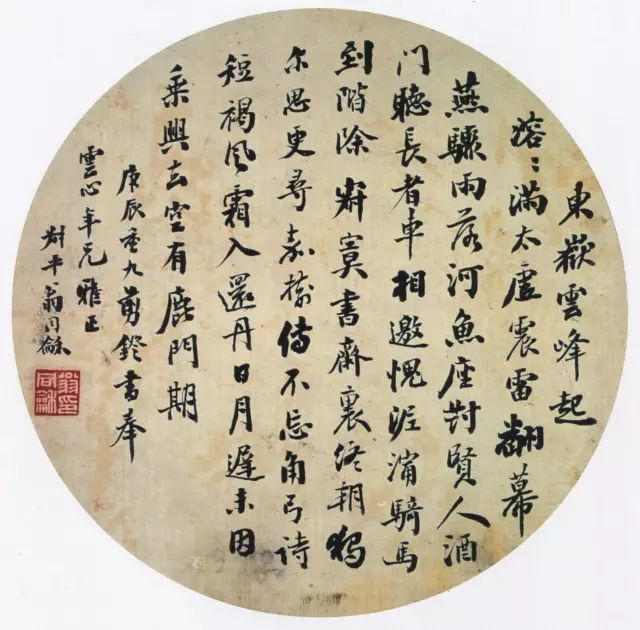 東嶽雲峰起
溶〻滿太虛震雷翻幕
燕驟雨落河魚座對賢人酒
門聽長者車相邀愧泥濘騎馬
到階除寂寞書齋裏終朝獨
尔思更尋嘉樹傳不忘角弓诗
短褐風霜入還丹日月遲未因
乘興去空有鹿門期
庚辰重九剪鐙書奉
雲心年兄雅正
叔平翁同龢
翁同龢印